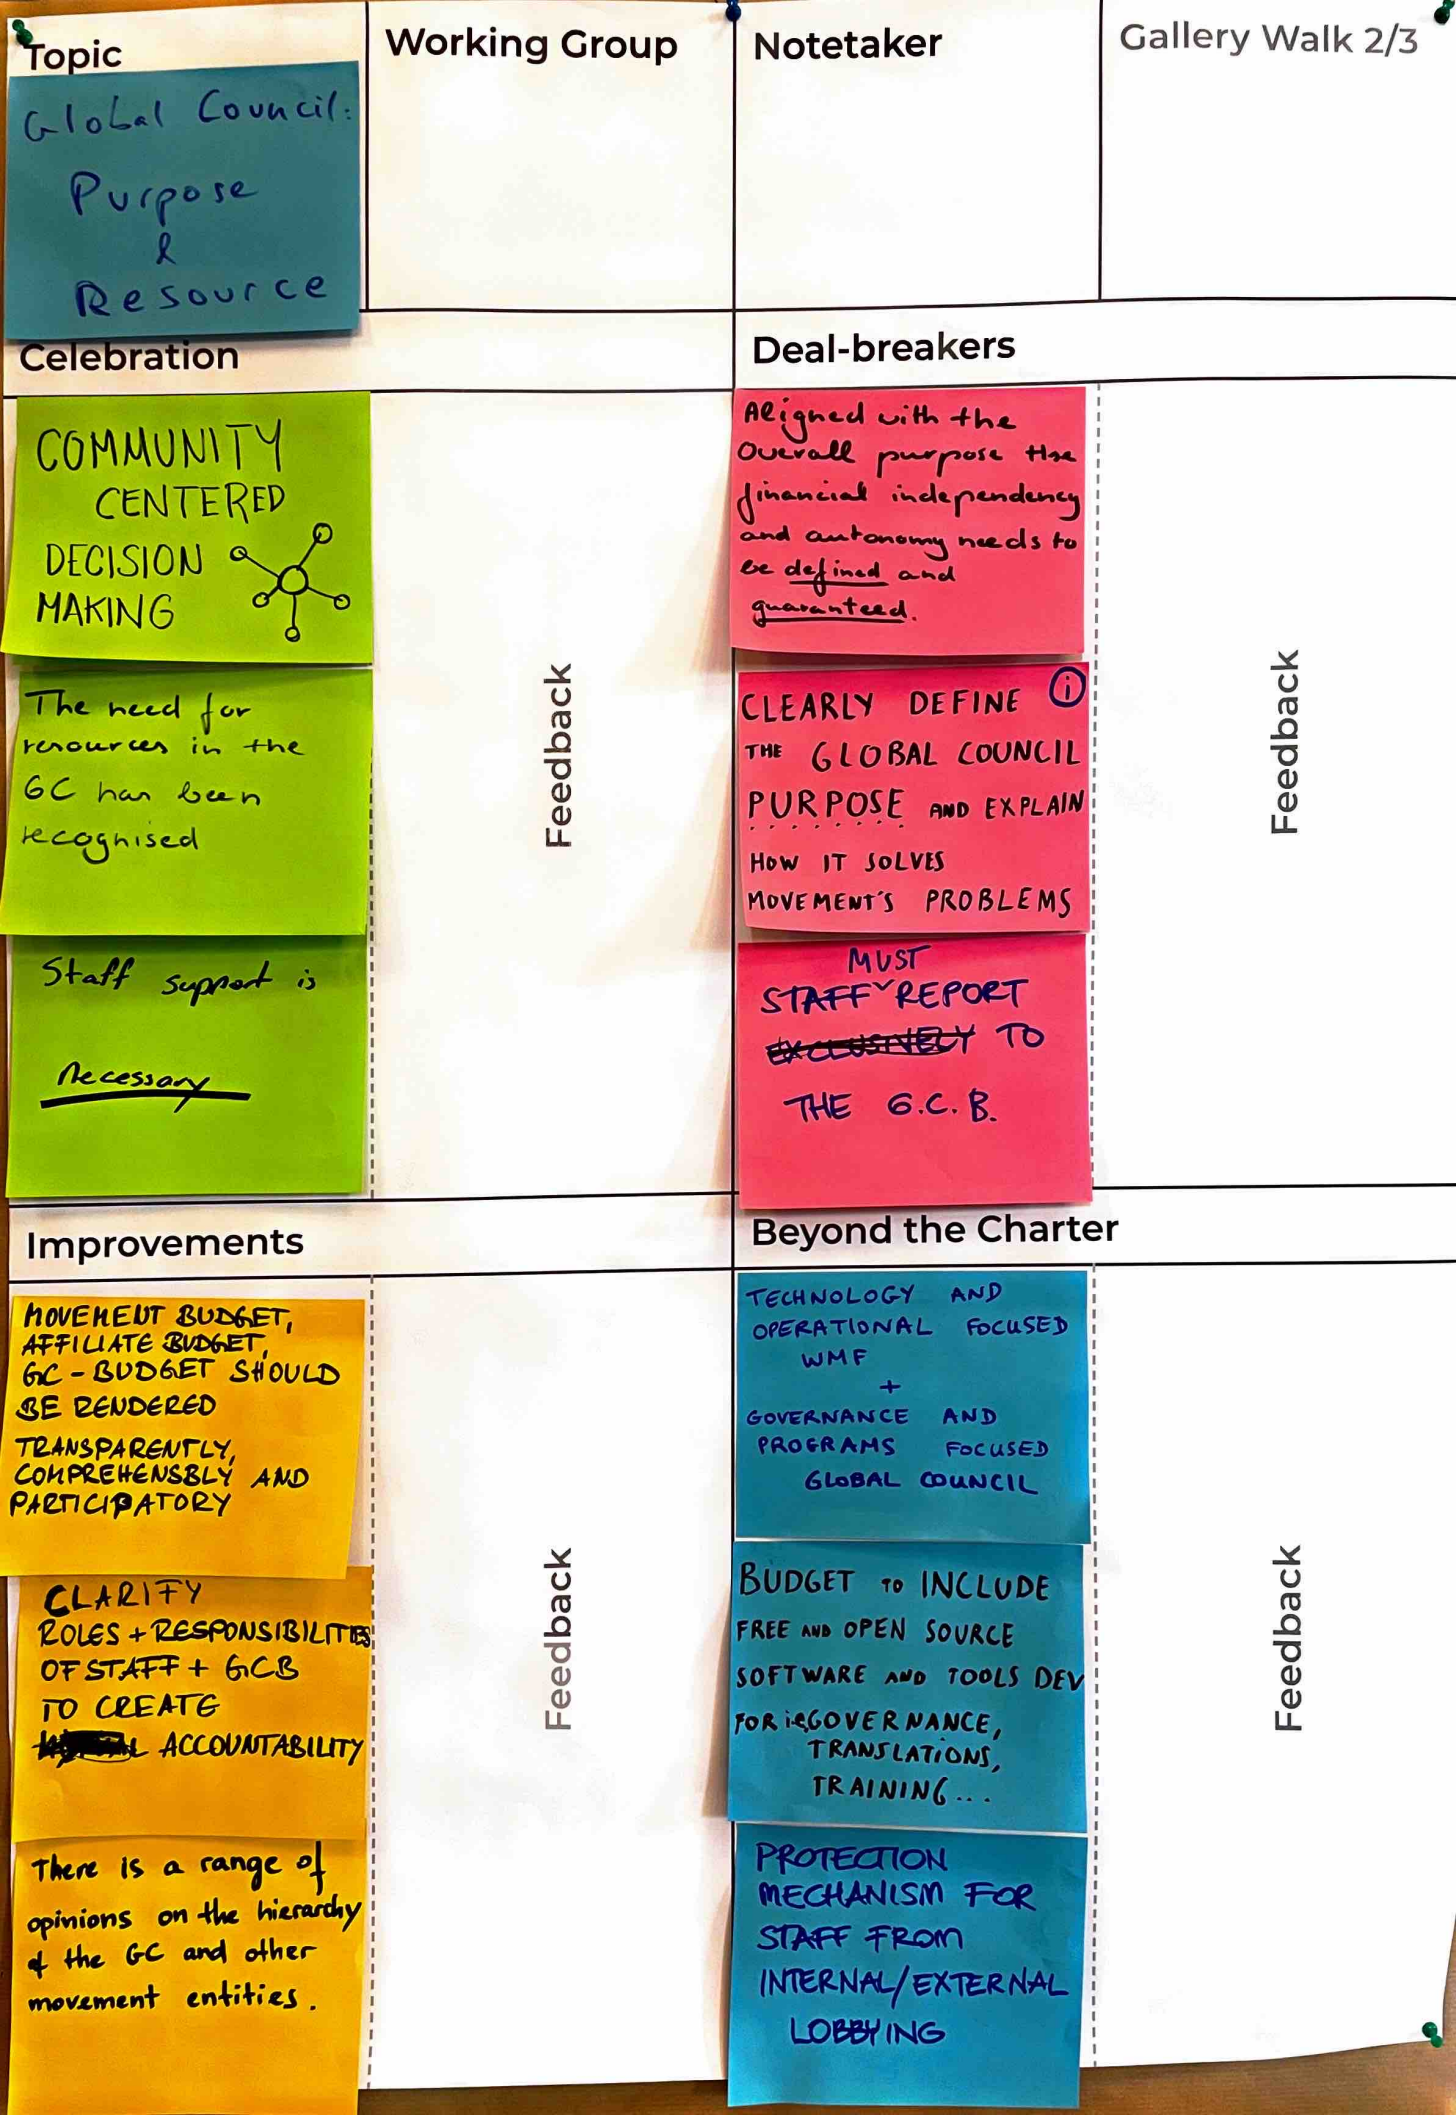 Topic
Working Group
Notetaker
Gallery Walk 2/3
Global Council:
Purpose
&
Resource
Celebration
COMMUNITY
CENTERED
DECISION
MAKING
The need for
resources in the
GC has been
recognised
Staff support is
Necessary
Feedback
Deal-breakers
Aligned with the
Overall purpose the
financial independency
and autonomy needs to
be defined and
guaranteed.
CLEARLY DEFINE i
THE GLOBAL COUNCIL
PURPOSE AND EXPLAIN
HOW IT SOLVES
MOVEMENT'S PROBLEMS
MUST
STAFF REPORT
EXCLUSIVELY TO
THE G.C.B.
Feedback
Improvements
MOVEMENT BUDGET,
AFFILIATE BUDGET,
GC - BUDGET SHOULD
BE RENDERED
TRANSPARENTLY,
COMPREHENSBLY AND
PARTICIPATORY
CLARIFY
ROLES + RESPONSIBILITIES
OF STAFF + GCB
TO CREATE
ACCOUNTABILITY
There is a range of
opinions on the hierarchy
of the GC and other
movement entities.
Feedback
Beyond the Charter
TECHNOLOGY AND
OPERATIONAL FOCUSED
WMF
+
GOVERNANCE AND
PROGRAMS FOCUSED
GLOBAL COUNCIL
BUDGET TO INCLUDE
FREE AND OPEN SOURCE
SOFTWARE AND TOOLS DEV
FOR i.e GOVERNANCE,
TRANSLATIONS,
TRAINING...
PROTECTION
MECHANISM FOR
STAFF FROM
INTERNAL/EXTERNAL
LOBBYING
Feedback